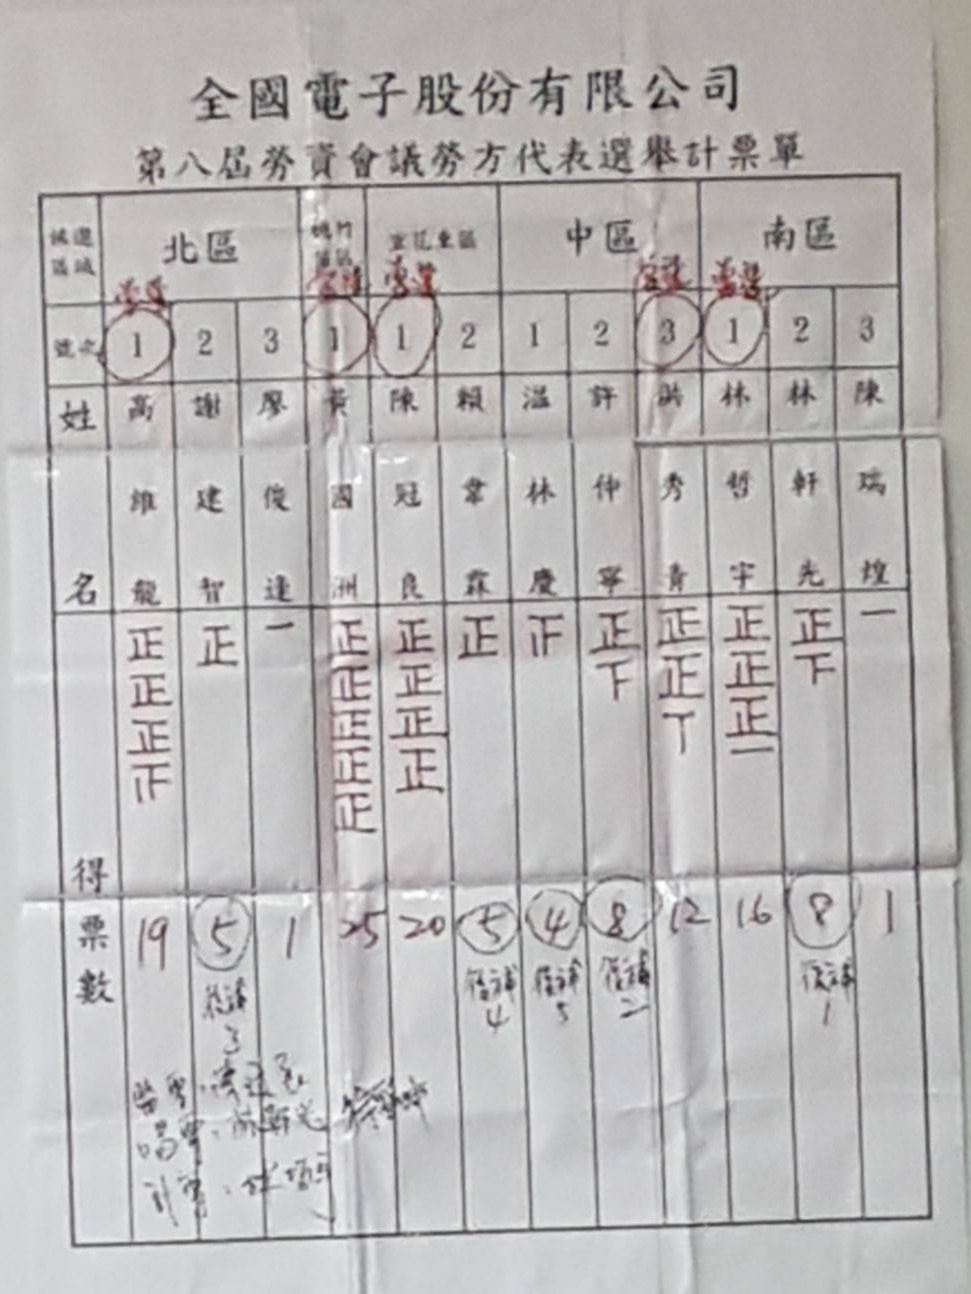 全國電子股份有限公司
第八屆勞資會議勞方代表選舉計票單
候選區域 北區 桃竹苗區 宜花東區 中區 南區
當選 當選 當選 當選 當選
號次 1 2 3 1 1 2 1 2 3 1 2 3
姓 高 謝 廖 黃 陳 賴 溫 許 洪 林 林 陳
維 建 俊 國 冠 韋 林 仲 秀 哲 軒 瑞
名 龍 智 達 洲 良 霖 慶 寧 青 宇 先 煌
正 正 一 正 正 正 正 正 正 正 一
正 正 正 下 正 正 下
正 正 正 丅 正
正 正 一
正
得票數 19 5 1 25 20 5 4 8 12 16 8 1
候補3 候補4 候補5 候補2 候補1
監票:
唱票:林軒先
計票: